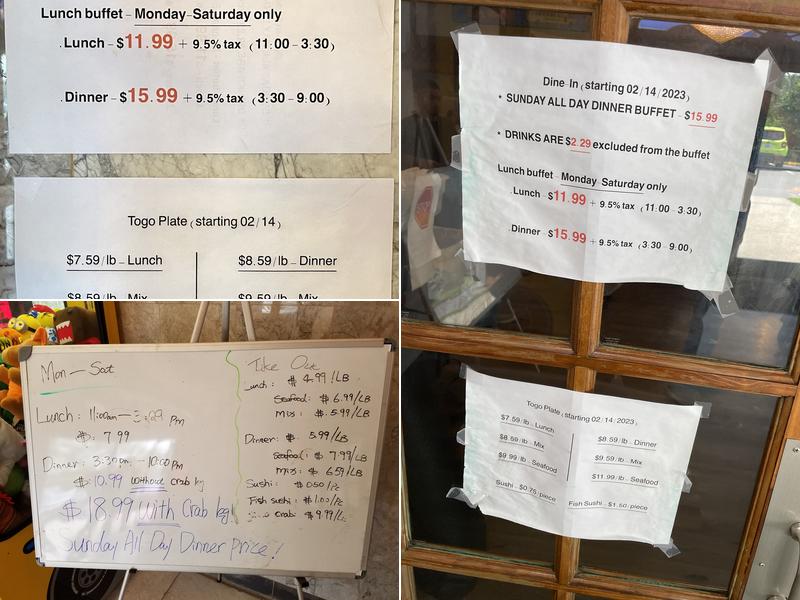 Lunch buffet - Monday-Saturday only
Lunch - $11.99 + 9.5% tax (11:00 - 3:30)
Dinner - $15.99 + 9.5% tax (3:30 - 9:00)
Togo Plate (starting 02/14)
$7.59/lb - Lunch
$8.59/lb - Dinner
$8.59/lb - Mix
$9.59/lb - Mix
Dine-In (starting 02/14/2023)
* SUNDAY ALL DAY DINNER BUFFET - $15.99
* DRINKS ARE $2.29 excluded from the buffet
Lunch buffet - Monday-Saturday only
Lunch - $11.99 + 9.5% tax (11:00 - 3:30)
Dinner - $15.99 + 9.5% tax (3:30 - 9:00)
Togo Plate (starting 02/14/2023)
$7.59/lb - Lunch
$8.59/lb - Mix
$9.99/lb - Seafood
Sushi - $0.75/piece
$8.59/lb - Dinner
$9.59/lb - Mix
$11.99/lb - Seafood
Fish Sushi - $1.50/piece
Mon - Sat
Lunch: 11:00am - 3:29 pm
$: 7.99
Dinner: 3:30pm - 10:00pm
$: 10.99 without crab leg
$18.99 with Crab leg!
Sunday All Day Dinner price!
Take Out
Lunch: $ 4.99/LB
Seafood: $ 6.99/LB
Mix: $ 5.99/LB
Dinner: $ 5.99/LB
Seafood: $ 7.99/LB
Mix: $ 6.59/LB
Sushi: $0.50/Pc
Fish sushi: $1.00/Pc
Crab: $9.99/L